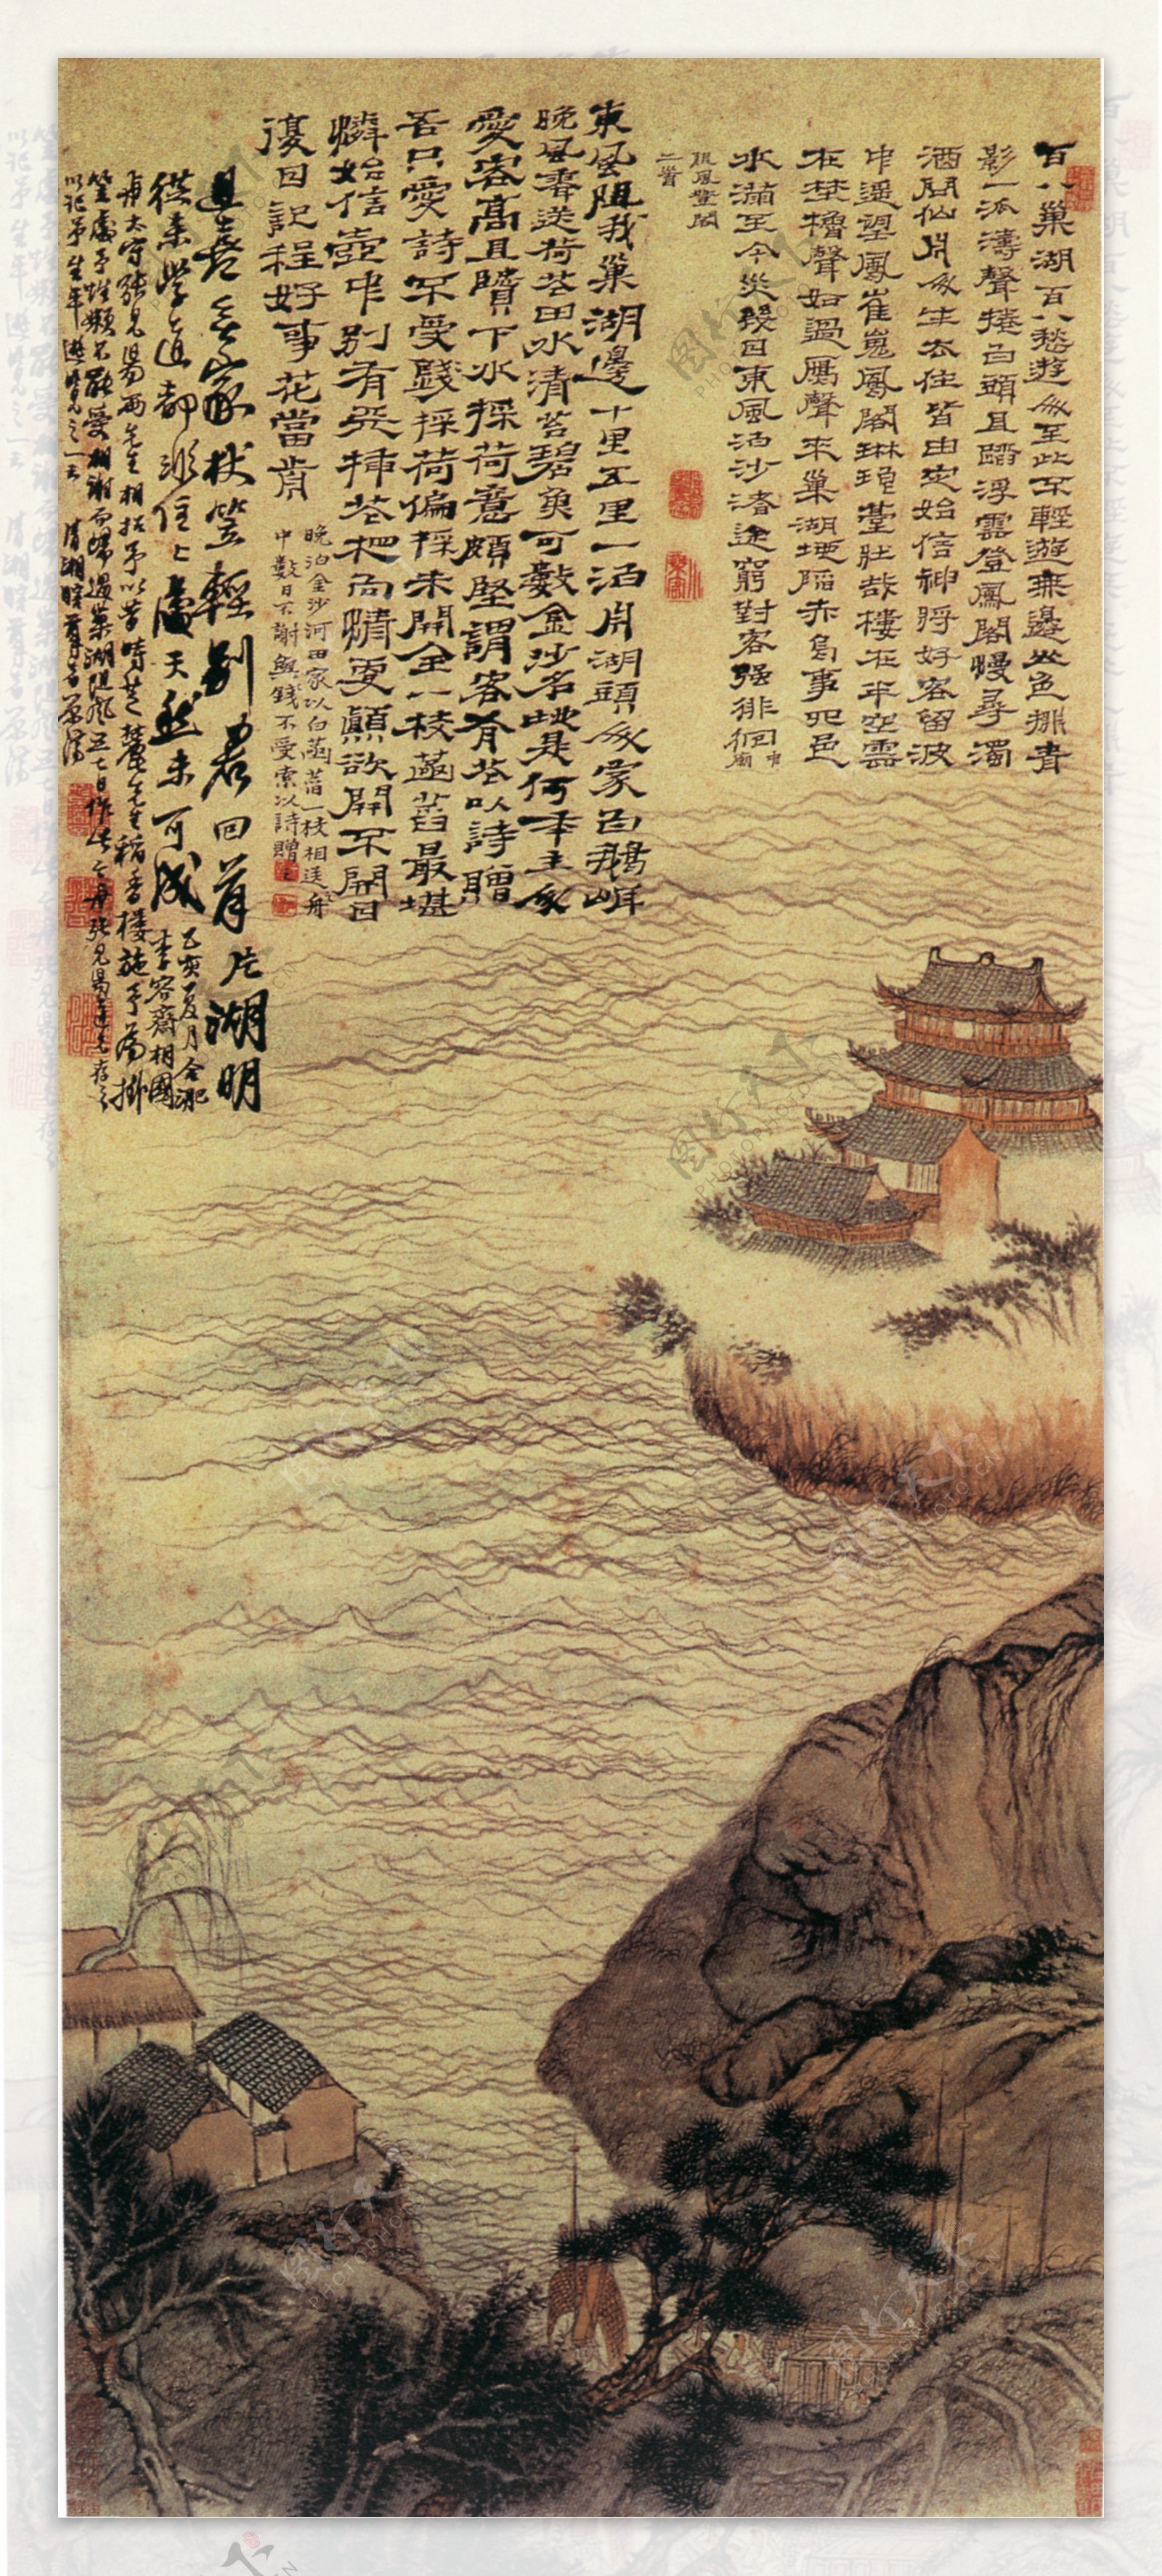 百八巢湖百八愁遊人至此不輕遊無邊山色排青
影一派濤聲捲白頭且踏浮雲登鳳閣慢尋濁
酒問仙舟人生去住皆由定始信神將好客留波
中遥望鳳崔嵬鳳閣琳琅臺壯哉樓在半空雲
在埜櫓聲如過鴈聲來巢湖地陷赤烏事四邑
水滿至今災幾日東風泊沙渚途窮對客强徘徊
中廟
阻風登閣
二首
東風阻我巢湖邊十里五里一泊舟湖頭人家白鵝岸
晚風齊送荷花田水清苔碧魚可數金沙名此是何年主人
愛客高且賢下水採荷意頗堅謂客有花以詩贈
吾只愛詩不愛錢採荷偏採未開全一枝菡萏最堪
憐始信壺中别有天揷花把向情更顛欲開不開日
復日記程好事花當肯
晚泊金沙河田家以白菡萏一枝相送舟
中數日不謝與錢不受索以詩贈之
且喜無家杖笠輕别君回首片湖明
從來學道都非住住處天然未可成
乙亥夏月合淝
李容齋相國
與太守張見陽兩先生相招予以昔時芝麓先生稻香樓施予為掛
笠處予性懶不能受相謝而歸過巢湖阻風五七日作此今與張見陽道兄存之
以記予生平遊覽之一云 清湘瞎尊者原濟